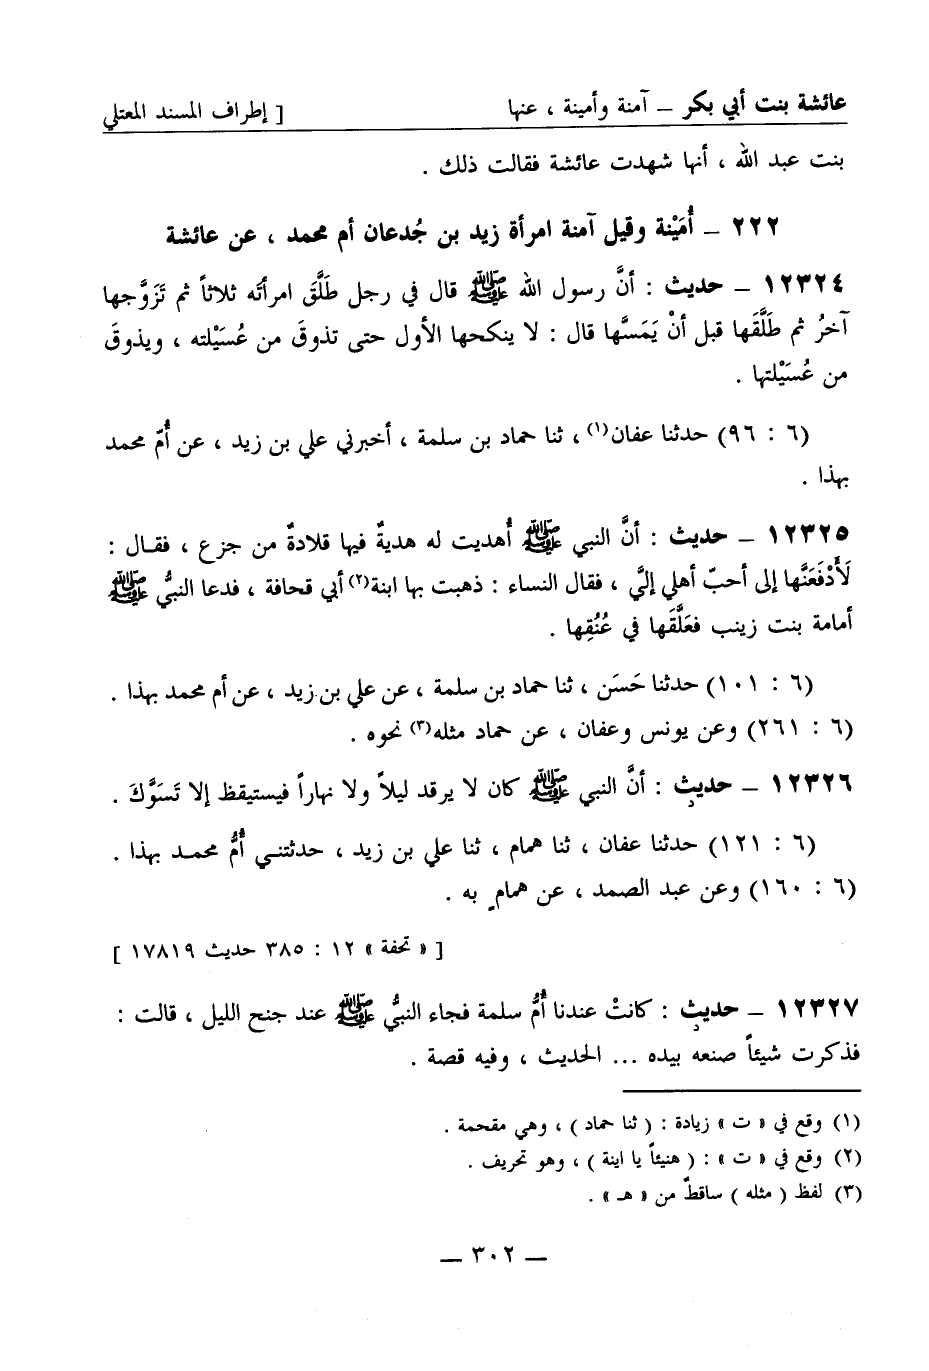 عائشة بنت أبي بكر – آمنة وأمينة ، عنها [ إطراف المسند المعتلي
بنت عبد الله ، أنها شهدت عائشة فقالت ذلك .
٢٢٢ – أُمَيْنة وقيل آمنة امرأة زيد بن جُدعان أم محمد ، عن عائشة
١٢٣٢٤ – حديث : أنَّ رسول الله ﷺ قال في رجل طَلَّقَ امرأتَه ثلاثاً ثم تَزَوَّجها
آخرُ ثم طَلَّقَها قبل أنْ يَمَسَّها قال : لا ينكحها الأول حتى تذوقَ من عُسَيْلته ، ويذوقَ
من عُسَيْلتها .
(٦ : ٩٦) حدثنا عفان(١) ، ثنا حماد بن سلمة ، أخبرني علي بن زيد ، عن أُمّ محمد
بهذا .
١٢٣٢٥ – حديث : أنَّ النبي ﷺ أُهديت له هديةٌ فيها قلادةٌ من جزع ، فقال :
لَأدْفَعَنَّها إلى أحبّ أهلي إليَّ ، فقال النساء : ذهبت بها ابنة(٢) أبي قحافة ، فدعا النبيُّ ﷺ
أمامة بنت زينب فعَلَّقَها في عُنُقِها .
(٦ : ١٠١) حدثنا حَسَن ، ثنا حماد بن سلمة ، عن علي بن زيد ، عن أم محمد بهذا .
(٦ : ٢٦١) وعن يونس وعفان ، عن حماد مثله(٣) نحوه .
١٢٣٢٦ – حديثِ : أنَّ النبي ﷺ كان لا يرقد ليلاً ولا نهاراً فيستيقظ إلا تَسَوَّكَ .
(٦ : ١٢١) حدثنا عفان ، ثنا همام ، ثنا علي بن زيد ، حدثتني أُمُّ محمد بهذا .
(٦ : ١٦٠) وعن عبد الصمد ، عن همامٍ به .
[ « تحفة » ١٢ : ٣٨٥ حديث ١٧٨١٩ ]
١٢٣٢٧ – حديثِ : كانتْ عندنا أُمُّ سلمة فجاء النبيُّ ﷺ عند جنح الليل ، قالت :
فذكرت شيئاً صنعه بيده ... الحديث ، وفيه قصة .
(١) وقع في « ت » زيادة : ( ثنا حماد ) ، وهي مقحمة .
(٢) وقع في « ت » : ( هنيئاً يا ابنة ) ، وهو تحريف .
(٣) لفظ ( مثله ) ساقطٌ من « هـ » .
– ٣٠٢ –